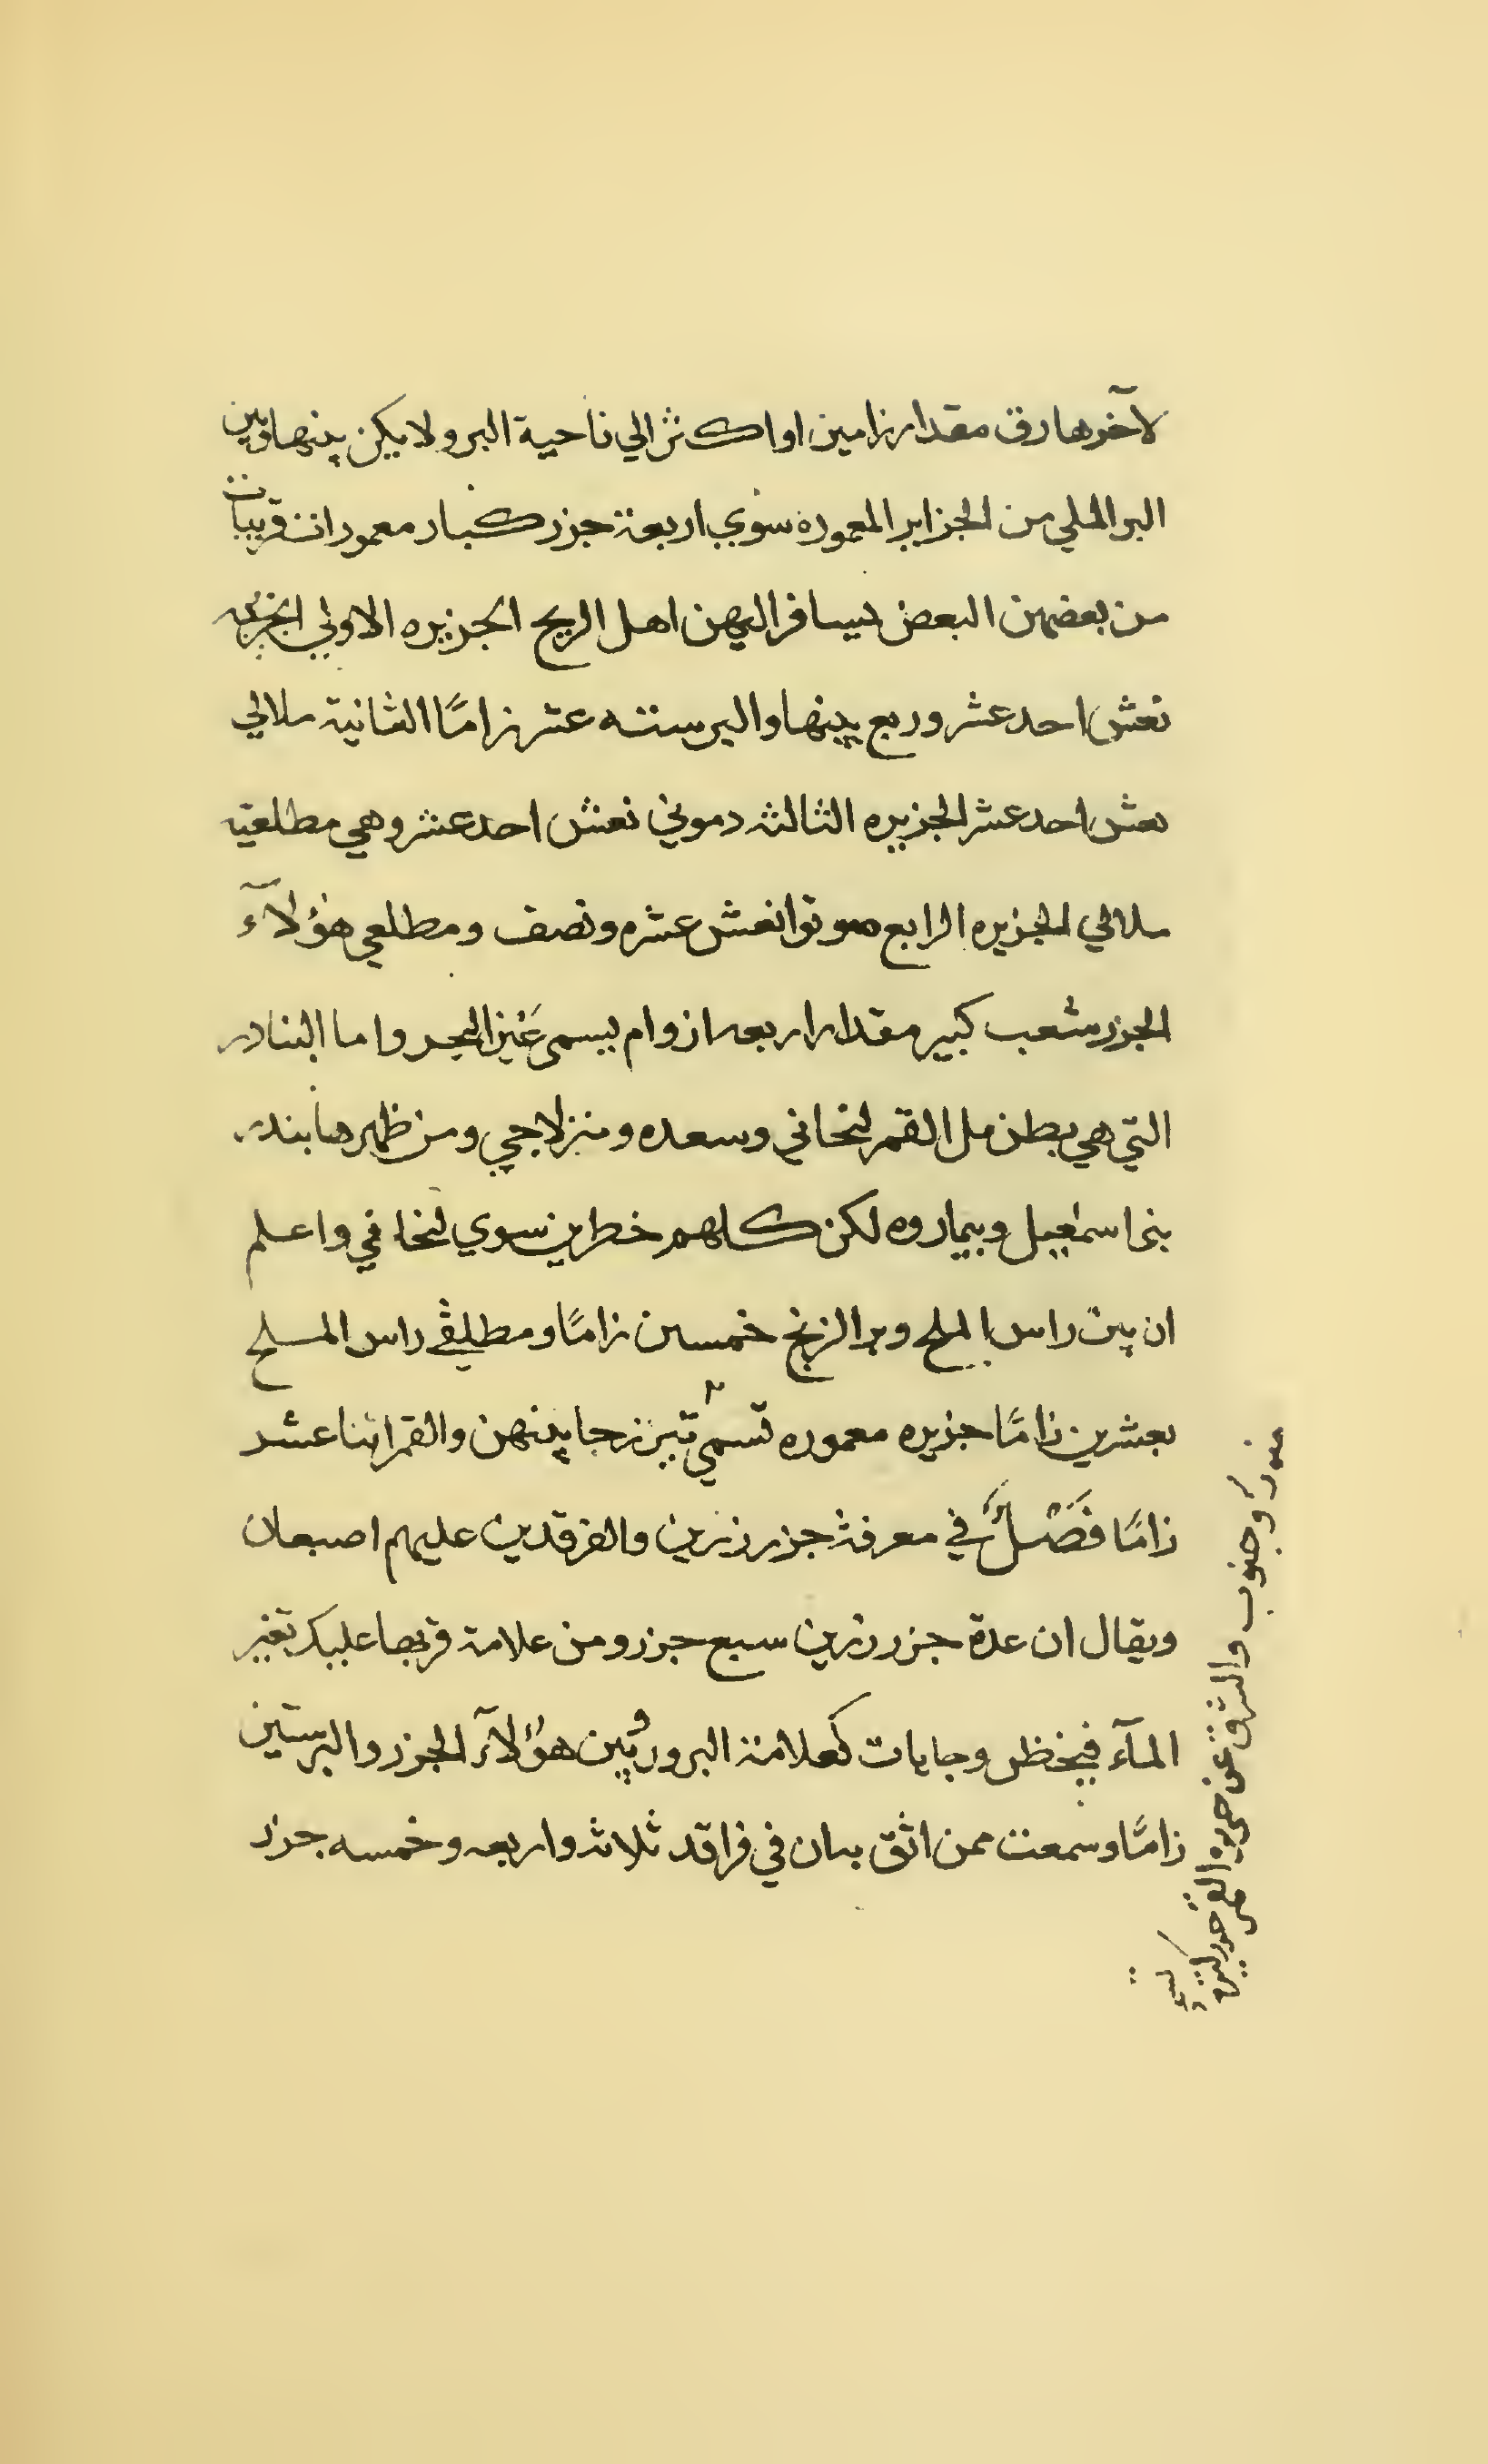 لآخرها رق مقدار زامين او اكثر الي ناحية البر ولا يكن بينها وبين
البر الملي من الجزاير المعموره سوي اربعة جزر كبار معمورات قريبات
من بعضهن البعض يسافر اليهن اهل الريح الجزيره الاولي
نعش احد عشر وربع بينها والبر ستته عشر زامًا الثانية ملالي
نعش احد عشر الجزيره الثالثه دموني نعش احد عشر وهي مطلعية
ملالي الجزيره الرابع هو توا نعش عشره ونصف ومطلعي هؤلآء
الجزر شعب كبير مقدار اربعه ازوام يسمى عَنز البحر واما البنادر
التي هي ببطن مل القمر لنحاني وسعده ومنزلاجي ومن ظهرها بندر
بني اسمعيل وبيماروه لكن كلهم خطرين سوي لنحاني واعلم
ان بين راس الملح وبر الزنج خمسين زامًا ومطلعي راس الملح
بعشرين زامًا جزيره معموره تسمي تيرزجا بينهن والقمر اثنا عشر
زامًا فَصْلٌ في معرفة جزر زرين والفرقدين عليهم اصبعان
ويقال ان عدة جزر زرين سبع جزر ومن علامة قربها عليك تغير
المآء فيخظر وجايات كعلامة البرور وبين هؤلآء الجزر والبر ستين
زامًا وسمعت ممن اثق بيان في فراقد ثلاثه واربعه وخمسه جزر
وجنوب والشرق عن جزيره القمر جزر كثيرة